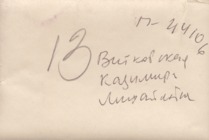 П-44106
13
Витковская
Казимира
Михайловна